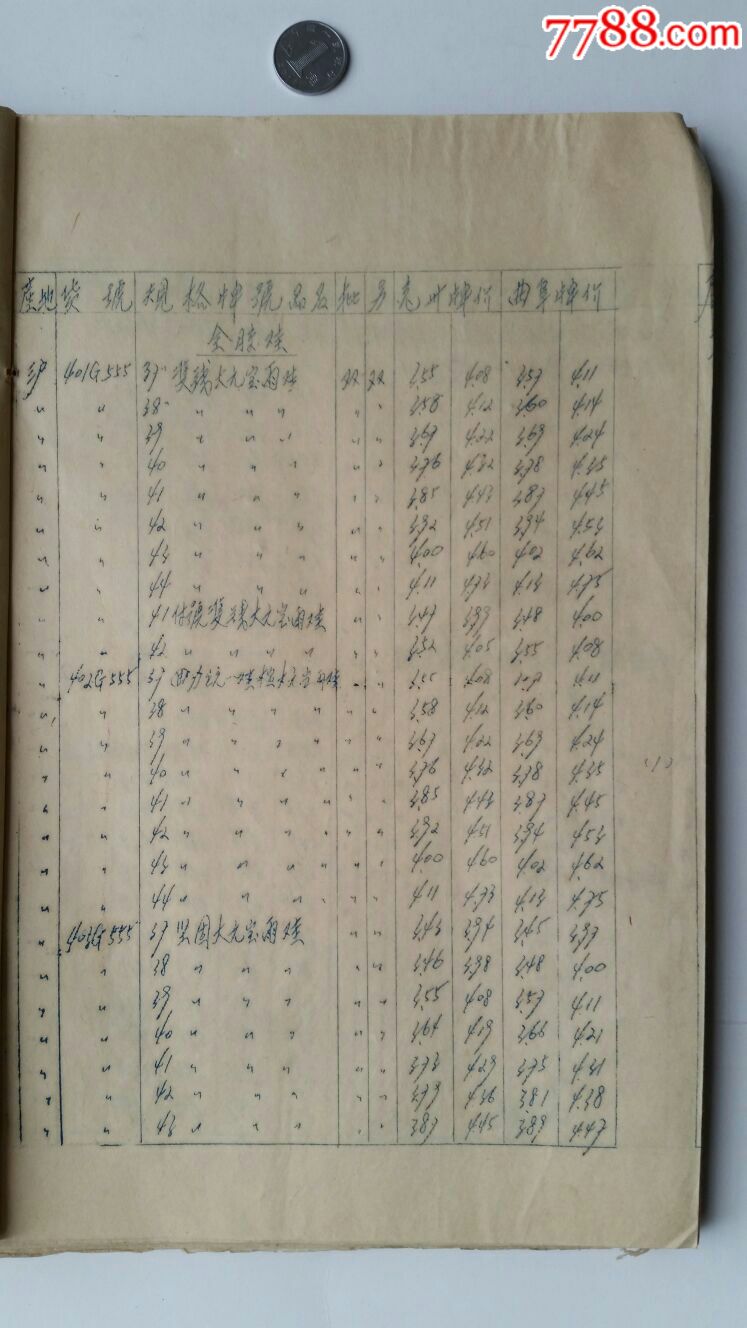 7788.com
產地 货號 規格牌號品名 批 另 兖州牌价 曲阜牌价
全胶鞋
沪 401G555 37 双錢大元宝雨鞋 双 双 3.55 4.08 3.57 4.11
〃 〃 38 〃 〃 〃 〃 〃 3.58 4.12 3.60 4.14
〃 〃 39 〃 〃 〃 〃 〃 3.67 4.22 3.69 4.24
〃 〃 40 〃 〃 〃 〃 〃 3.76 4.32 3.78 4.35
〃 〃 41 〃 〃 〃 〃 〃 3.85 4.43 3.87 4.45
〃 〃 42 〃 〃 〃 〃 〃 3.92 4.51 3.94 4.53
〃 〃 43 〃 〃 〃 〃 〃 4.00 4.60 4.02 4.62
〃 〃 44 〃 〃 〃 〃 〃 4.11 4.73 4.13 4.75
〃 〃 41 付號双錢大元宝雨鞋 〃 〃 3.47 3.99 3.48 4.00
〃 〃 42 〃 〃 〃 〃 〃 〃 3.52 4.05 3.55 4.08
〃 402G555 37 大元宝雨鞋 〃 〃 3.55 4.08 3.57 4.11
〃 〃 38 〃 〃 〃 〃 〃 〃 3.58 4.12 3.60 4.14
〃 〃 39 〃 〃 〃 〃 〃 〃 3.67 4.22 3.69 4.24
〃 〃 40 〃 〃 〃 〃 〃 〃 3.76 4.32 3.78 4.35
〃 〃 41 〃 〃 〃 〃 〃 〃 3.85 4.43 3.87 4.45
〃 〃 42 〃 〃 〃 〃 〃 〃 3.92 4.51 3.94 4.53
〃 〃 43 〃 〃 〃 〃 〃 〃 4.00 4.60 4.02 4.62
〃 〃 44 〃 〃 〃 〃 〃 〃 4.11 4.73 4.13 4.75
〃 403G555 37 坚固大元宝雨鞋 〃 〃 3.43 3.94 3.45 3.97
〃 〃 38 〃 〃 〃 〃 〃 3.46 3.98 3.48 4.00
〃 〃 39 〃 〃 〃 〃 〃 3.55 4.08 3.57 4.11
〃 〃 40 〃 〃 〃 〃 〃 3.64 4.19 3.66 4.21
〃 〃 41 〃 〃 〃 〃 〃 3.73 4.29 3.75 4.31
〃 〃 42 〃 〃 〃 〃 〃 3.79 4.36 3.81 4.38
〃 〃 43 〃 〃 〃 〃 〃 3.87 4.45 3.89 4.47